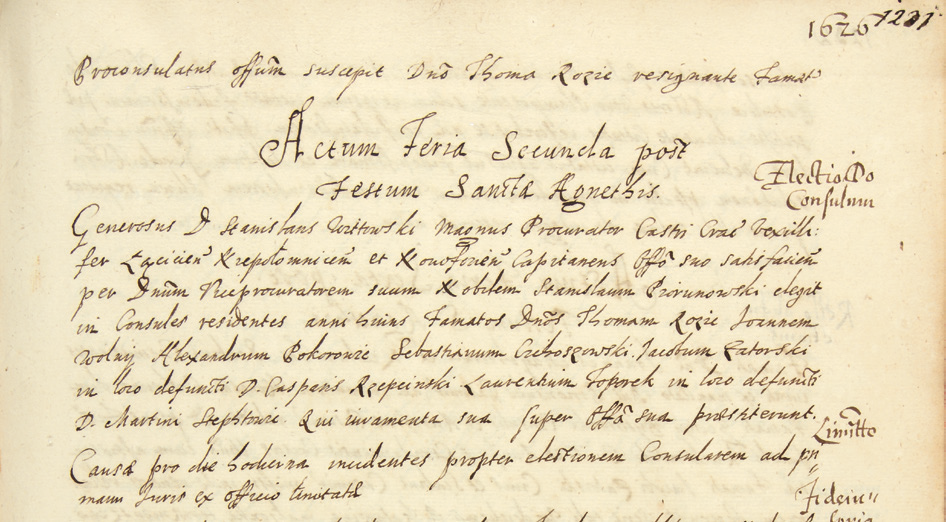 1626 1231
Proconsulatus offũm suscepit Dnõ Thoma Rozic resignante famat
Actum Feria Secunda post
Festum Sanctæ Agnethis.
Electio Do
Consulum
Generosus D Stanislaus Witowski Magnus Procurator Castri Crac Vexilli:
fer Niepolomicen et Capitaneus Offõ suo satisfacien
per Dnũm Viceprocuratorem suum Nobilem Stanislaum Piorunowski elegit
in Consules residentes anni huius Famatos Dnõs Thomam Rozic Joannem
Wolny Alexandrum Pokorowic Sebastianum Czeboszowski. Jacobum Zatorski
in loco defuncti D. Casparis Rzepcinski Laurentium Toporek in loco defuncti
D. Martini Qui iuramenta sua super Offã sua præstiterunt.
Limitto
Causæ pro die hodierna incidentes propter electionem Consularem ad pri
mam Juris ex officio limitatæ
Fideiu"